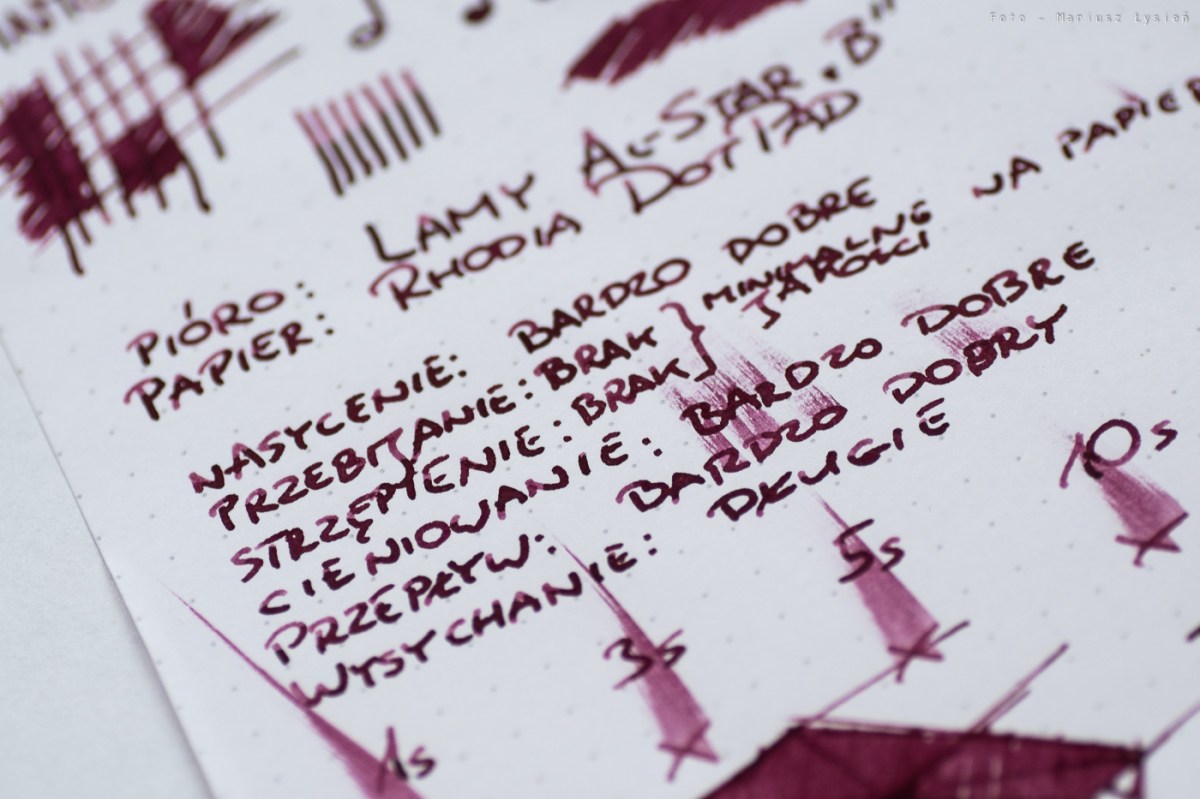 Foto - Mariusz Łysień
PIÓRO: LAMY AL-STAR „B”
PAPIER: RHODIA DOTPAD
NASYCENIE: BARDZO DOBRE
PRZEBIJANIE: BRAK } MINIMALNE NA PAPIER
STRZĘPIENIE: BRAK } JAKOŚCI
CIENIOWANIE: BARDZO DOBRE
PRZEPŁYW: BARDZO DOBRY
WYSYCHANIE: DŁUGIE
1s 3s 5s 10s